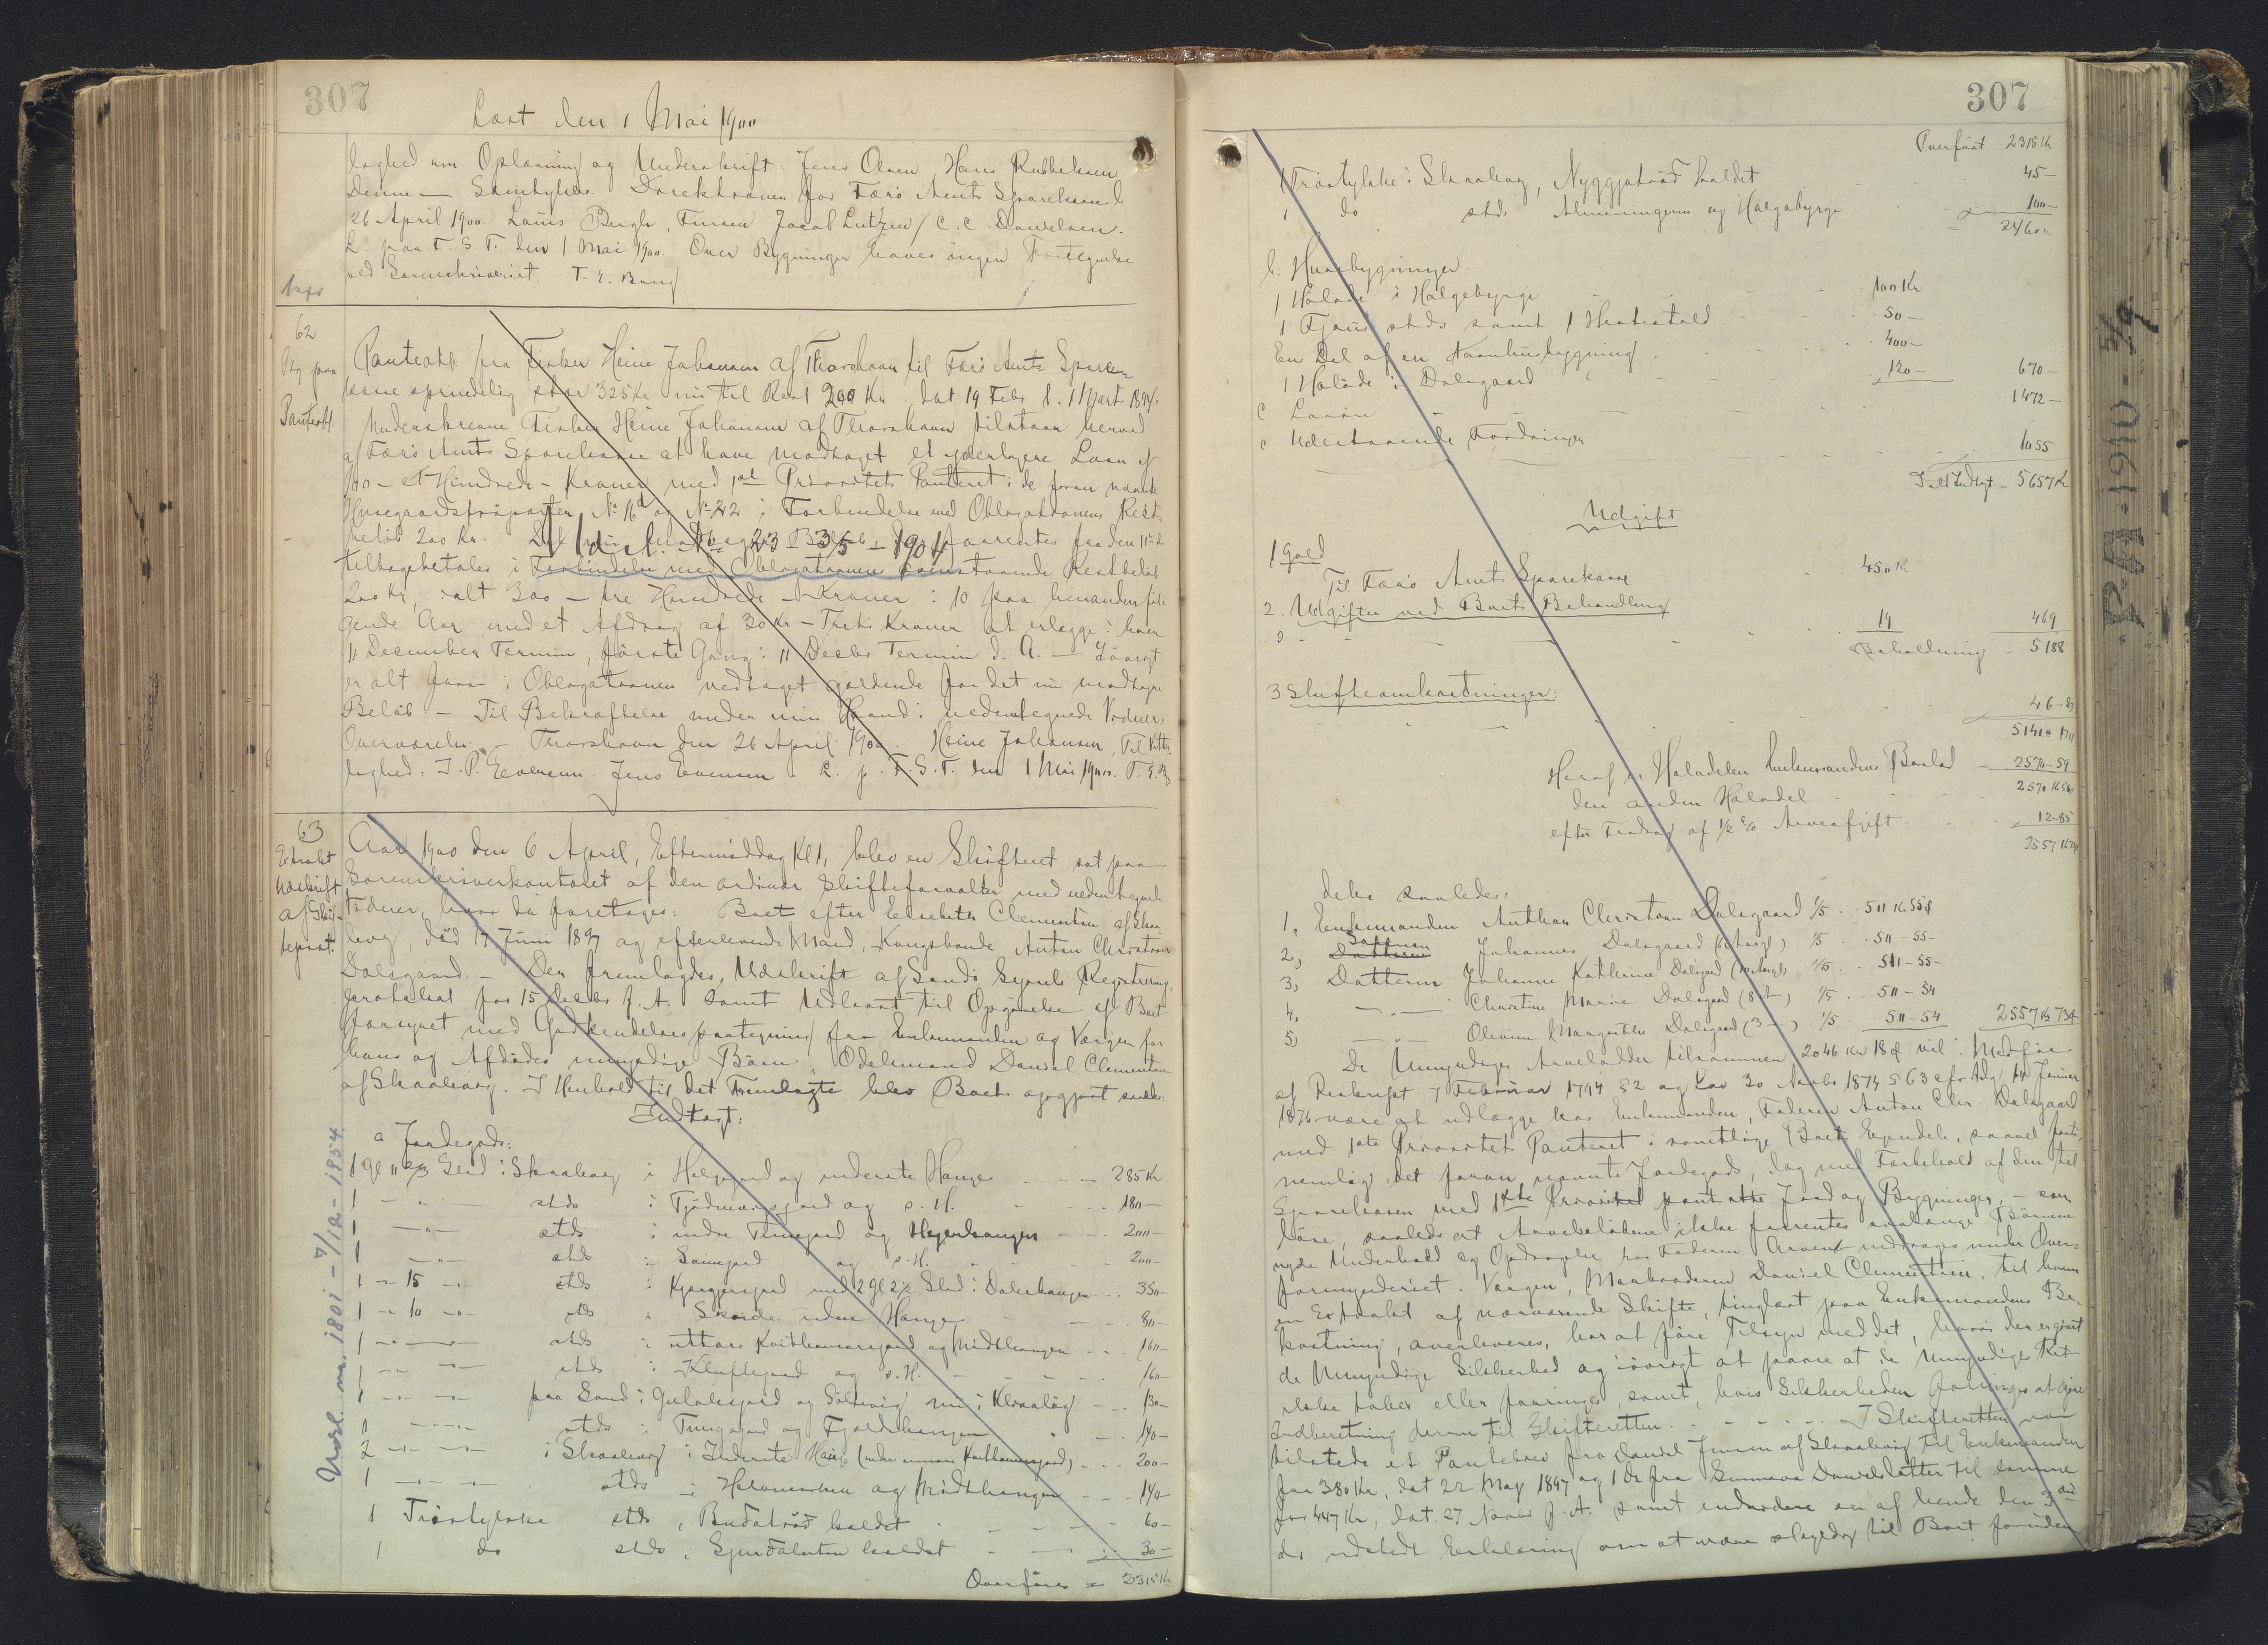 307
Læst den 1 Mai 1900
lighed om Oplæsning og Underskrift: Jens Olsen, Hans Rubeksen
Denne — Samtykkes Direktionen for Færø Amts Sparekasse d.
26 April 1900. Louis Bergh, Finsen Jacob Lutzen / C. C. Danielsen.
L. paa F. S. T. den 1 Mai 1900. Over Bygninger haves ingen Fortegnelse
ved Sorenskriveriet. T. E. Bang
62
Pag paa
Panteobl.
Panteobl. fra Fisker Heine Johansen af Thorshavn til Færø Amts Sparekasse
oprindelig stor 325 Kr nu til Rest 200 Kr. dat 19 Febr l. 1 Marts 1894.
Underskrevne Fisker Heine Johansen af Thorshavn tilstaar herved
af Færø Amts Sparekasse at have modtaget et yderligere Laan af
100 – et Hundrede – Kroner med 1st Prioritets Panteret i de foran nævnte
Huusgaardsparter, No 16a og No 242 i Forbindelse med Obligationens Rest
beløb 200 Kr. forrentes fra den 11te
Udsl. No 23 3/5 – 1904
tilbagebetales i Forbindelse med Obligationens Restbeløb
200 Kr, ialt 300 – tre Hundrede – Kroner i 10 paa hinanden føl-
gende Aar med et Afdrag af 30 Kr – Treti Kroner at erlægge i hver
11 December Termin, første Gang i 11 Decbr Termin d. A. — Iøvrigt
er alt foran i Obligationen vedtaget gældende for det nu modtagne
Beløb — Til Bekræftelse under min Haand i nedentegnede Vidners
Overværelse. — Thorshavn den 26 April 1900. Heine Johansen, Til Vitter-
lighed: J. P. Evensen. Jens Evensen L. p. F. S. T. den 1 Mai 1900. T. E. B.
63
Extrakt
Udskrift
af Skif-
teprot.
Aar 1900 den 6 April, Eftermiddag Kl 1, blev en Skifteret sat paa
Sorenskriverkontoret af den ordinær Skifteforvalter med nedentegnede
Vidner, hvor da foretoges: Boet efter Elsebeth Clementsen af Skaa-
levig, død 17 Juni 1897 og efterlevende Mand, Kongsbonde Anton Christian
Dalsgaard. — Der fremlagdes, Udskrift af Sandø Syssels Registrerings-
protokol for 15 Decbr f. A. samt Udkast til Opgørelse af Boet
forsynet med Godkendelsespaategning fra Enkemanden og Værgen for
hans og Afdødes umyndige Børn, Odelsmand Daniel Clementsen
af Skaalevig. I Henhold til det Fremlagte blev Boets opgjort saaledes:
Indtægt:
a Jordegods:
1 Gl 11 2/3 Skd i Skaalevig i Helgegerd og inderste Hauge — 285 Kr
1 — " — stds i Tjødnaregjerd og s. H. — 180 —
1 — " — stds i indre Tunegerd og Hegerhaugen — 200 —
1 — " — stds i Sainegerd og s. H. — 200 —
1 — 15 — stds i Kjærgjersgerd med 2 Gl 2 1/2 Skd i Dalerhaugen — 350 —
1 — 10 — stds i Skorde uden Hauge — 80 —
1 — " — stds i uttara Kvithamaregerd og Midthaugen — 160 —
1 — " — stds i Kluftegerd og s. H. — 160 —
1 — " — paa Sand i Gulaksgerd og Søltuvig nu i Klovaløg — 130 —
1 — " — stds i Tungegerd og Fjeldshaugen — 140 —
2 — " — i Skaalevig i Inderste Hauge (under innara Kvithamaregerd) — 200 —
1 — " — stds i og Midthaugen — 140 —
1 Trøstykke stds, Budatrøð kaldet — 60 —
1 do stds, kaldet — 30 —
Overføres = 2315 Kr
Udsl. m. 1801 – 7/12 – 1954
307
Overført 2315 Kr
1 Trøstykke i Skaalevig, Nyggjatrøð kaldet 45 —
1 do stds Almeningerne og Halgabyrge 100 —
= 2460 —
b. Huusbygninger:
1 Hølade i Halgebyrge 100 Kr
1 Fjøs stds samt 1 Hestestald 50 —
En Del af en Vaanhusbygning 400 —
1 Hølade i Dalsgaard 120 — 670 —
c Løsøre 1472 —
c Udestaaende Fordringer 1055
Ialt Indtægt = 5657 Kr
Udgift
1 Gæld
Til Færø Amts Sparekasse 450 Kr
2. Udgifter ved Boets Behandling
19 469
Beholdning = 5188
3 Skifteomkostninger: 46 – 83
5141 Kr 17 Ø
Heraf er Halvdelen Enkemandens Boslod — 2570 – 59
den anden Halvdel 2570 Kr 58
efter Fradrag af 1/2 % Arveafgift 12 – 85
2557 Kr 73
deles saaledes:
1, Enkemanden Anthon Christian Dalsgaard 1/5 . 511 Kr 55 Ø
2, Sønnen Johannes Dalsgaard 1/5 . . 511 – 55 –
3, Datteren Johanne Kathrine Dalsgaard 1/5 . . 511 – 55 –
4, — " — Christine Marie Dalsgaard (8 — ) 1/5 . . 511 – 54
5, — " — Olevine Margrethe Dalsgaard (3 — ) 1/5 . 511 – 54 2557 Kr 73 Ø
De Umyndiges Arvelodder tilsammen 2046 Kr 18 Ø vil i Medføre
af Reskript 7 Februar 1794 § 2 og Lov 30 Novbr 1874 § 63 cfr. Adg 14 Januar
1876 være at udlægge hos Enkemanden, Faderen Anton Chr. Dalsgaard
med 1ste Prioritet Panteret i samtlige Boets Ejendele, saavel faste,
nemlig det foran nævnte Jordegods, dog med Forbehold af den til
Sparekassen med 1ste Prioritet pantsatte Jord og Bygninger, — som
løse, saaledes at Arvebeløbene ikke forrentes saalænge Børnene
nyde Underhold og Opdragelse hos Faderen Arven inddrages under Over-
formynderiet. Værgen, Morbroderen Daniel Clementsen, til hvem
en Extrakt af nærværende Skifte, tinglæst paa Enkemandens Be-
kostning, overleveres, har at føre Tilsyn med det, hvori der er givet
de Umyndige Sikkerhed og iøvrigt at paase at de Umyndiges Ret
ikke tabes eller forringes, samt, hvis Sikkerheden forringes, at gjøre
Indberetning derom til Skifteretten. — — — I Skifteretten var
tilstede et Pantebrev fra Daniel Jensen af Skaalevig til Enkemanden
for 380 Kr, dat 22 May 1897 og 1 do fra Sunneva Danielsdatter til samme
for 447 Kr, dat. 27 Novbr f. A. samt endvidere en af hende den 3die
ds udstedt Erklæring om at være skyldig til Boet foruden
P.A. 1910 – 5/9